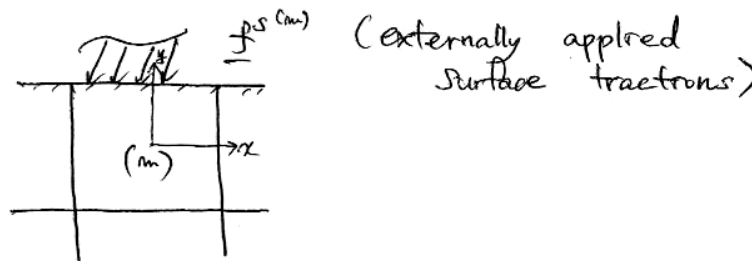 f^S(m) (externally applied
surface tractions)
y
x
(m)